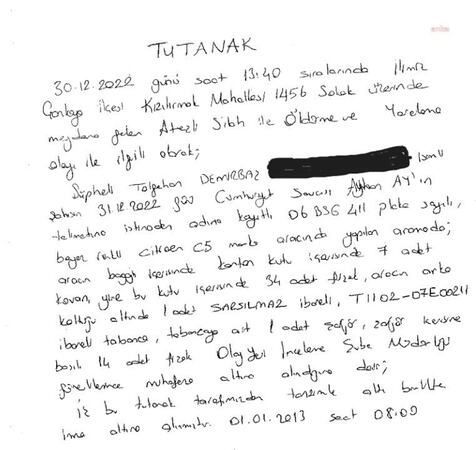 TUTANAK
30.12.2022 günü saat 13:40 sıralarında İlimiz
Çankaya ilçesi Kızılırmak Mahallesi 1456 Sokak üzerinde
meydana gelen Ateşli Silah ile Öldürme ve Yaralama
olayı ile ilgili olarak;
Şüpheli Tolgahan DEMİRBAŞ isimli
şahsın 31.12.2022 günü Cumhuriyet Savcısı Ayhan AY'ın
talimatına istinaden adına kayıtlı 06 BSG 411 plaka sayılı,
beyaz renkli citroen C5 marka aracında yapılan aramada;
aracın bagajı içerisinde karton kutu içerisinde 7 adet
kovan, yine bu kutu içerisinde 34 adet fişek, aracın arka
koltuğu altında 1 adet SARSILMAZ ibareli, T1102-07E00211
ibareli tabanca, tabancaya ait 1 adet şarjör, şarjör içerisine
basılı 14 adet fişek Olay Yeri İnceleme Şube Müdürlüğü
görevlilerince muhafaza altına alındığına dair;
İş bu tutanak tarafımızdan tanzimle altı birlikte
imza altına alınmıştır. 01.01.2013 saat 08:00